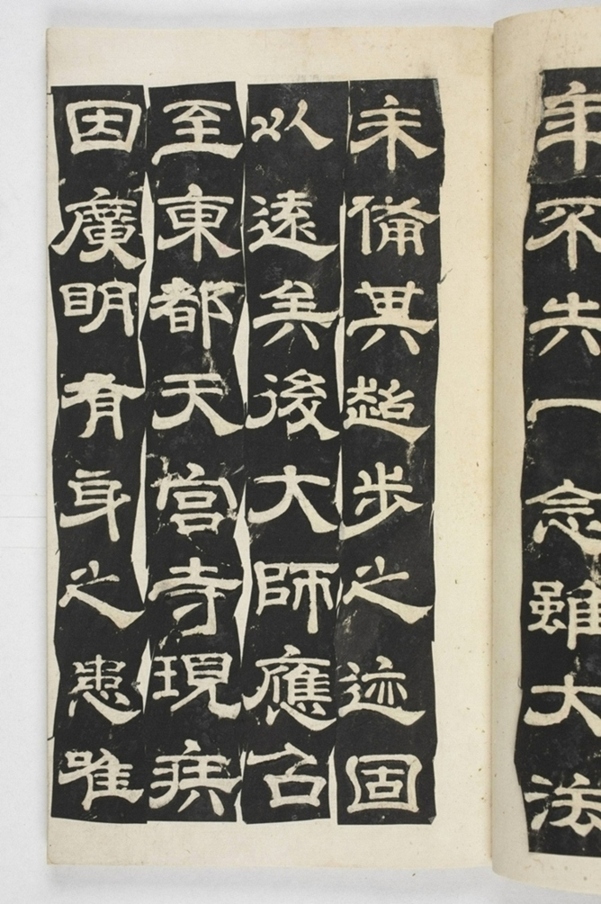 年不失一念雖大法
未備其超步之迹固
以遠矣後大師應召
至東都天宮寺現疾
因廣明有身之患唯